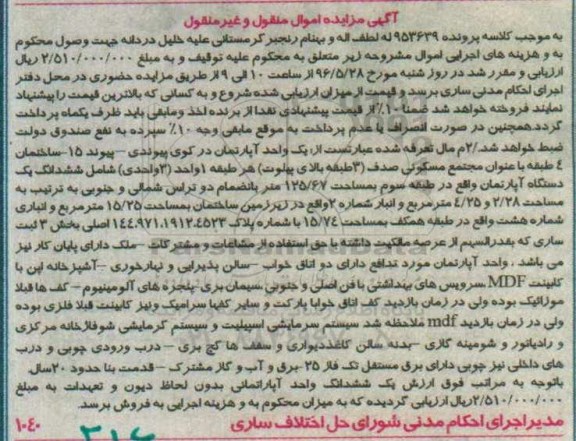 آگهی مزایده اموال منقول و غیرمنقول
به موجب کلاسه پرونده ۹۵۳۶۳۹ له لطف اله و بهنام رنجبر کرمستانی علیه خلیل دردانه جهت وصول محکوم
به و هزینه های اجرایی اموال مشروحه زیر متعلق به محکوم علیه توقیف و به مبلغ ۲/۵۱۰/۰۰۰/۰۰۰ ریال
ارزیابی و مقرر شد در روز شنبه مورخ ۹۶/۵/۲۸ از ساعت ۱۰ الی ۹ از طریق مزایده حضوری در محل دفتر
اجرای احکام مدنی ساری برسد و قیمت از میزان ارزیابی شده شروع و به کسانی که بالاترین قیمت را پیشنهاد
نمایند فروخته خواهد شد ضمنا ۱۰٪ از قیمت پیشنهادی نقدا از برنده اخذ ومابقی باید ظرف یکماه پرداخت
گردد.همچنین در صورت انصراف یا عدم پرداخت به موقع مابقی وجه ۱۰٪ سپرده به نفع صندوق دولت
ضبط خواهد شد./۲م مال تعرفه شده عبارتست از: یک واحد آپارتمان در کوی پیوندی – پیوند ۱۵-ساختمان
۴ طبقه با عنوان مجتمع مسکونی صدف (۳طبقه بالای پیلوت) هر طبقه ۱واحد (۳واحدی) شامل ششدانگ یک
دستگاه آپارتمان واقع در طبقه سوم بمساحت ۱۲۵/۶۷ متر بانضمام دو تراس شمالی و جنوبی به ترتیب به
مساحت ۲/۲۸ و ۴/۲۵ مترمربع و انبار شماره ۲واقع در زیرزمین ساختمان بمساحت ۱۵/۲۵ مترمربع و انباری
شماره هشت واقع در طبقه همکف بمساحت ۱۵/۷۴ با شماره پلاک ۱۴۴.۹۷۱.۱۹۱۲.۴۵۲۳ اصلی بخش ۳ ثبت
ساری که بقدرالسهم از عرصه مالکیت داشته با حق استفاده از مشاعات و مشترکات – ملک دارای پایان کار نیز
می باشد . واحد آپارتمان مورد تدافع دارای دو اتاق خواب –سالن پذیرایی و نهارخوری –آشپزخانه اپن با
کابینت MDF.سرویس های بهداشتی با فن اصلی و جنوبی.سیمان بری-پنجره های آلومینیوم – کف ها قبلا
موزائیک بوده ولی در زمان بازدید کف اتاق خوابا پارکت و سایر کفها سرامیک ونیز کابینت قبلا فلزی بوده
ولی در زمان بازدید mdf ملاحظه شد سیستم سرمایشی اسپیلیت و سیستم گرمایشی شوفاژخانه مرکزی
و رادیاتور و شومینه گازی –بدنه سالن کاغذدیواری و سقف ها گچ بری – درب ورودی چوبی و درب
های داخلی نیز چوبی دارای برق مستقل تک فاز ۲۵-برق و آب و گاز مشترک – قدمت بنا حدود ۲۰سال.
باتوجه به مراتب فوق ارزش یک ششدانگ واحد آپارتمانی بدون لحاظ دیون و تعهدات به مبلغ
۲/۵۱۰/۰۰۰/۰۰۰ریال ارزیابی گردیده که به میزان محکوم به و هزینه اجرایی به فروش برسد.
مدیر اجرای احکام مدنی شورای حل اختلاف ساری
۱۰۴۰